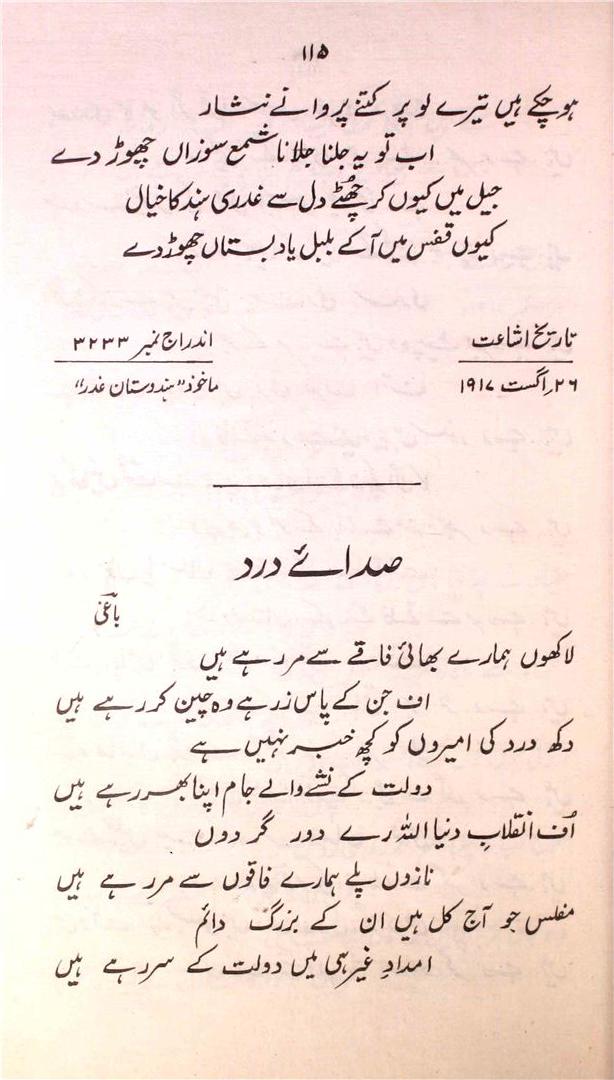 ۱۱۵
ہو چکے ہیں تیرے لو پر کتنے پروانے نثار
اب تو یہ جلنا جلانا شمع سوزاں چھوڑ دے
جیل میں کیوں کر چھُٹے دل سے غدری ہند کا خیال
کیوں قفس میں آ کے بلبل یاد بستاں چھوڑ دے
تاریخ اشاعت
۲۶؍اگست ۱۹۱۷
اندراج نمبر ۳۲۳۳
ماخوذ "ہندوستان غدر"
صدائے درد
باغی
لاکھوں ہمارے بھائی فاقے سے مر رہے ہیں
اف جن کے پاس زر ہے وہ چین کر رہے ہیں
دکھ درد کی امیروں کو کچھ خبر نہیں ہے
دولت کے نشے والے جام اپنا بھر رہے ہیں
اُف انقلابِ دنیا اللہ رے دور گردوں
نازوں پلے ہمارے فاقوں سے مر رہے ہیں
مفلس جو آج کل ہیں ان کے بزرگ دائم
امدادِ غیر ہی میں دولت کے سر رہے ہیں